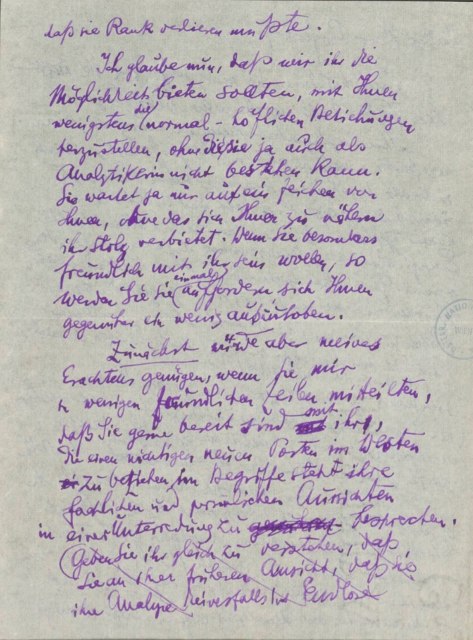 daß sie Rank verlieren mußte.
Ich glaube nun, daß wir ihr die
Möglichkeit bieten sollten, mit Ihnen
wenigstens die normal-höflichen Beziehungen
herzustellen, ohne die sie ja auch als
Analytikerin nicht bestehen kann.
Sie wartet ja nur auf ein Zeichen von
Ihnen, ohne das sich Ihnen zu nähern
ihr Stolz verbietet. Wenn Sie besonders
freundlich mit ihr sein wollen, so
werden Sie sie einmal auffordern sich Ihnen
gegenüber ein wenig
Zunächst würde aber meines
Erachtens genügen, wenn Sie mir
in wenigen freundlichen Zeilen mitteilten,
daß Sie gerne bereit sind mit ihr,
die einen wichtigen neuen Posten im Westen
zu beziehen im Begriffe steht ihre
fachlichen und persönlichen Aussichten
in einer Unterredung zu besprechen.
Geben Sie ihr gleich zu verstehen, daß
Sie an Ihrer früheren Ansicht, daß sie
ihre Analyse keinesfalls ins Endlose